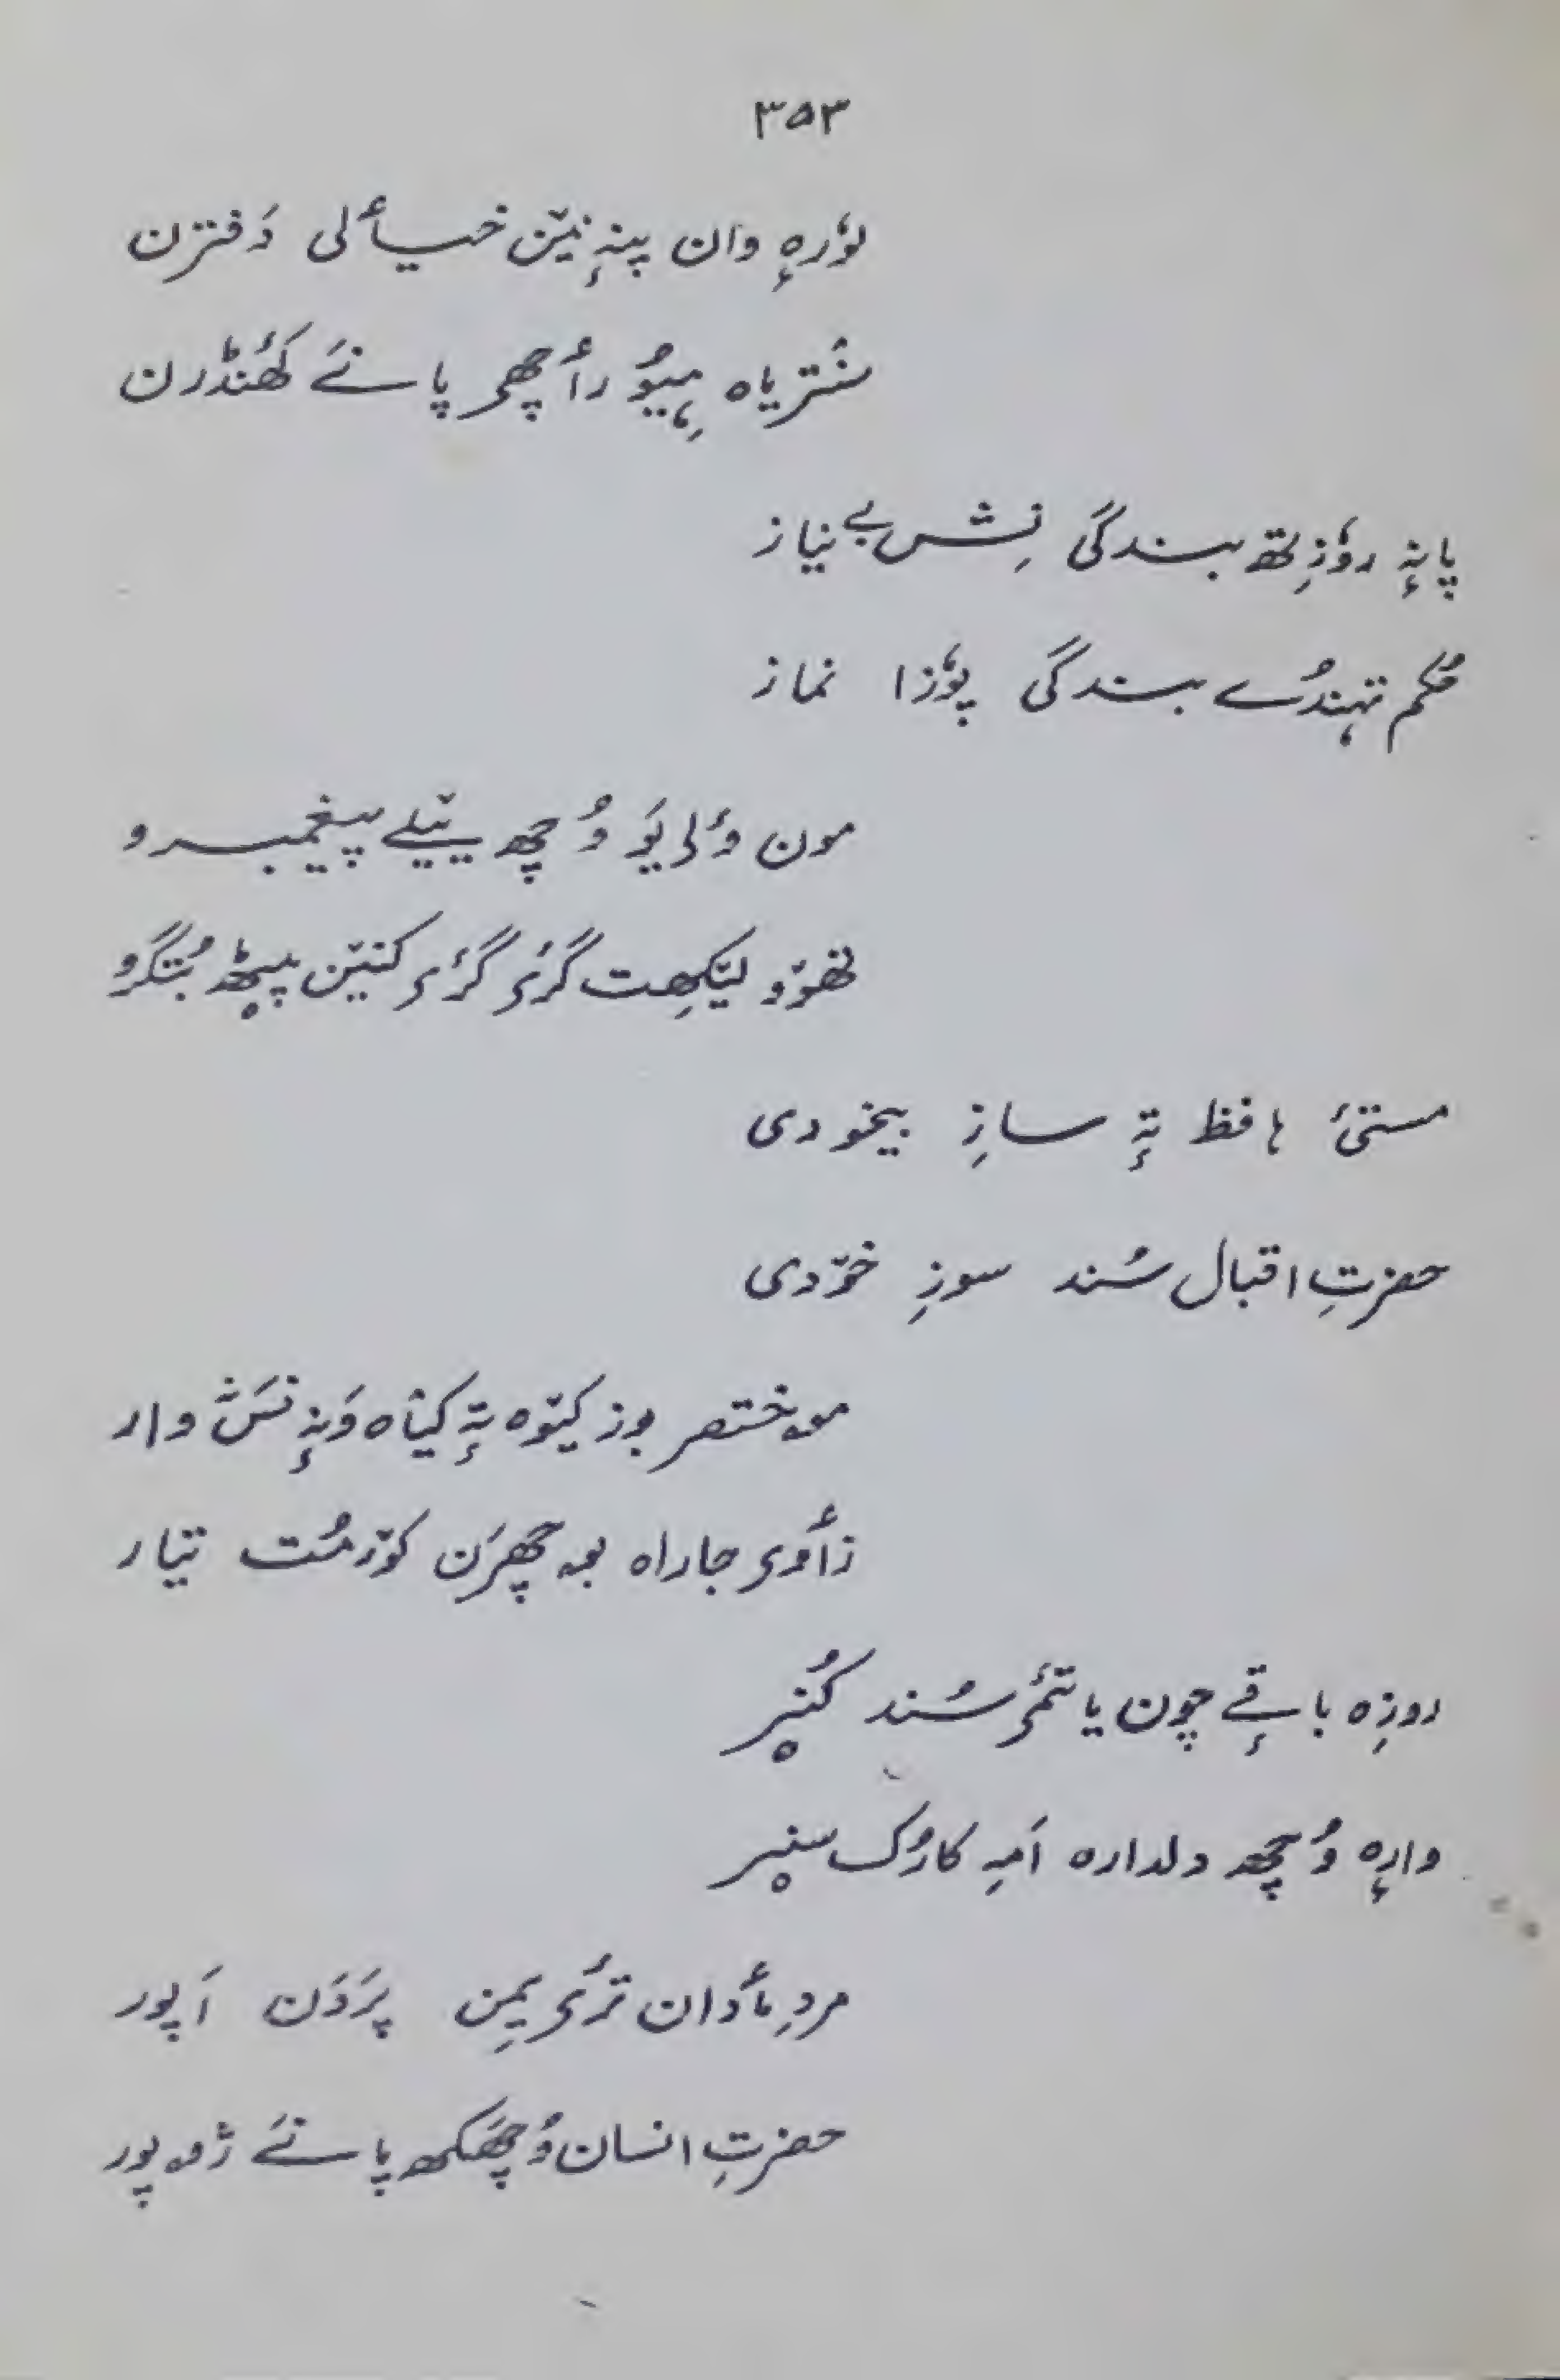 ۳۵۳
لوٗرِہ وان پنہٕ نیٚن خیٲلی دَفترن
سٔنتریاہ ہیوٗ رٲچھی پانَے کھٔنڈرن
پانہٕ روٗزِتھ بندگی نِش بے نیاز
حُکم تہندُے بندگی پوٗزا نماز
مون ؤلیَو وُچھ ییٚلے پیغمبرو
تھوٚو لیٚکھِت گرٔی گرٔی کنیٚن پیٹھ بُتگرو
مستیٔ حافظ تہٕ سازِ بیخودی
حضرتِ اقبال سُند سوزِ خوٚدی
موختصر بوز کیوٚہ تہٕ کیاہ وَنہٕ نَس وار
زٲوی جاراہ بہ چھرَن کوٚرمُت تیار
روزِہ باقٕے چون یا تٔمی سُند کُنیر
وارِہ وُچھ دلدارہ اَمہِ کارُک سنیر
مردِ مأدان ترٔی یمِن پرَدَن اَپور
حضرتِ انسان وُچھکھ پانَے ژہ پور